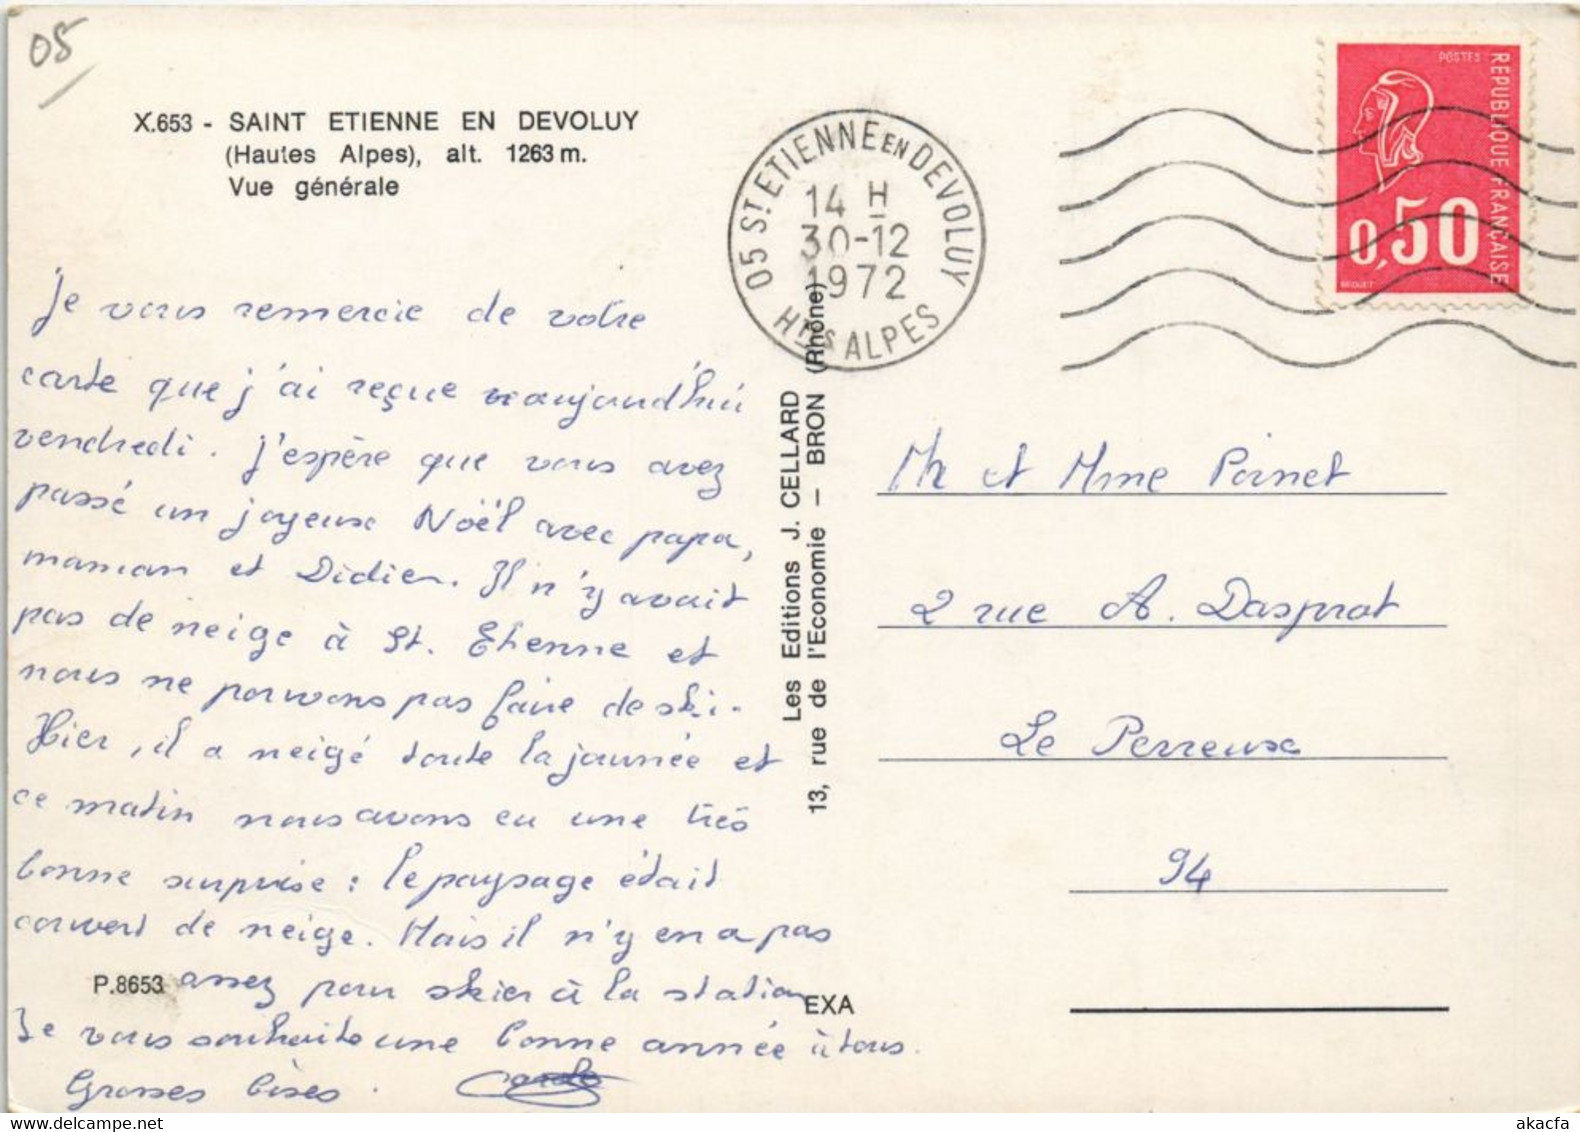 05
X.653 - SAINT ETIENNE EN DEVOLUY
(Hautes Alpes), alt. 1263 m.
Vue générale
05 ST ETIENNE EN DEVOLUY
14 H
30-12
1972
HTES ALPES
POSTES
REPUBLIQUE FRANÇAISE
0,50
BEQUET
Je vous remercie de votre
carte que j'ai reçue aujourd'hui
vendredi. J'espère que vous avez
passé un joyeux Noël avec papa,
maman et Didier. Il n'y avait
pas de neige à St. Etienne et
nous ne pouvons pas faire de ski.
Hier, il a neigé toute la journée et
ce matin nous avons eu une très
bonne surprise : le paysage était
couvert de neige. Mais il n'y en a pas
assez pour skier à la station
Je vous souhaite une bonne année à tous.
Grosses bises. Carole
P.8653
EXA
Les Editions J. CELLARD
13, rue de l'Economie - BRON (Rhône)
Mr et Mme Poinet
2 rue A. Dasprat
Le Perreux
94
www.akacfa.com
akacfa